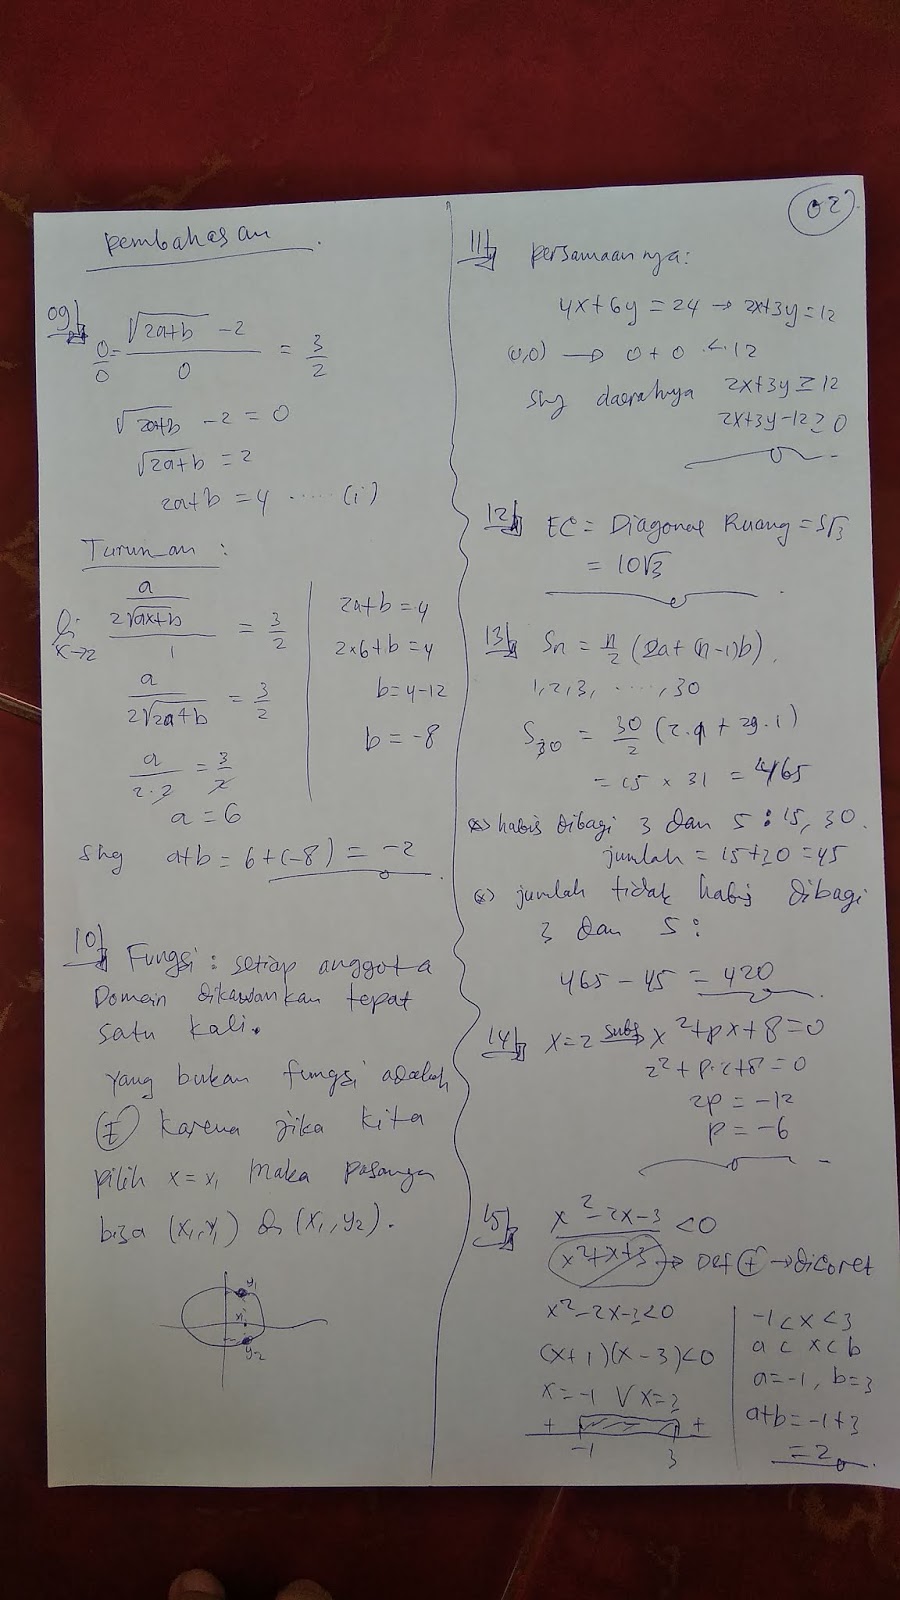 02
pembahasan
09
0/0 = (√(2a+b) - 2)/0 = 3/2
√(2a+b) - 2 = 0
√(2a+b) = 2
2a+b = 4 ..... (i)
Turunan :
Li x→2 (a/(2√(ax+b)))/1 = 3/2
a/(2√(2a+b)) = 3/2
a/(2.2) = 3/2
a = 6
2a+b = 4
2×6+b = 4
b = 4-12
b = -8
shg a+b = 6+(-8) = -2
10
Fungsi : setiap anggota
Domain dikawankan tepat
satu kali.
yang bukan fungsi adalah
karena jika kita
pilih x = x₁ maka pasangan
bisa (x₁,y₁) dn (x₁,y₂).
y₁
x₁
y₂
11
persamaannya:
4x+6y = 24 → 2x+3y = 12
(0,0) → 0 + 0 < 12
shg daerahnya 2x+3y ≥ 12
2x+3y-12 ≥ 0
12
EC = Diagonal Ruang = S√3
= 10√3
13
Sn = n/2 (2a+(n-1)b)
1,2,3, ....., 30
S30 = 30/2 (2.1 + 29.1)
= 15 × 31 = 465
*) habis dibagi 3 dan 5 : 15, 30.
jumlah = 15+30 = 45
*) jumlah tidak habis dibagi
3 dan 5 :
465 - 45 = 420
14
x=2 subs→ x²+px+8=0
2²+p.2+8=0
2p = -12
p = -6
15
(x²-2x-3)/(x²+x+3) < 0
→ Def + → dicoret
x²-2x-3<0
(x+1)(x-3)<0
x=-1 V x=3
+ - +
-1 3
-1 < x < 3
a < x < b
a=-1, b=3
a+b = -1+3
= 2